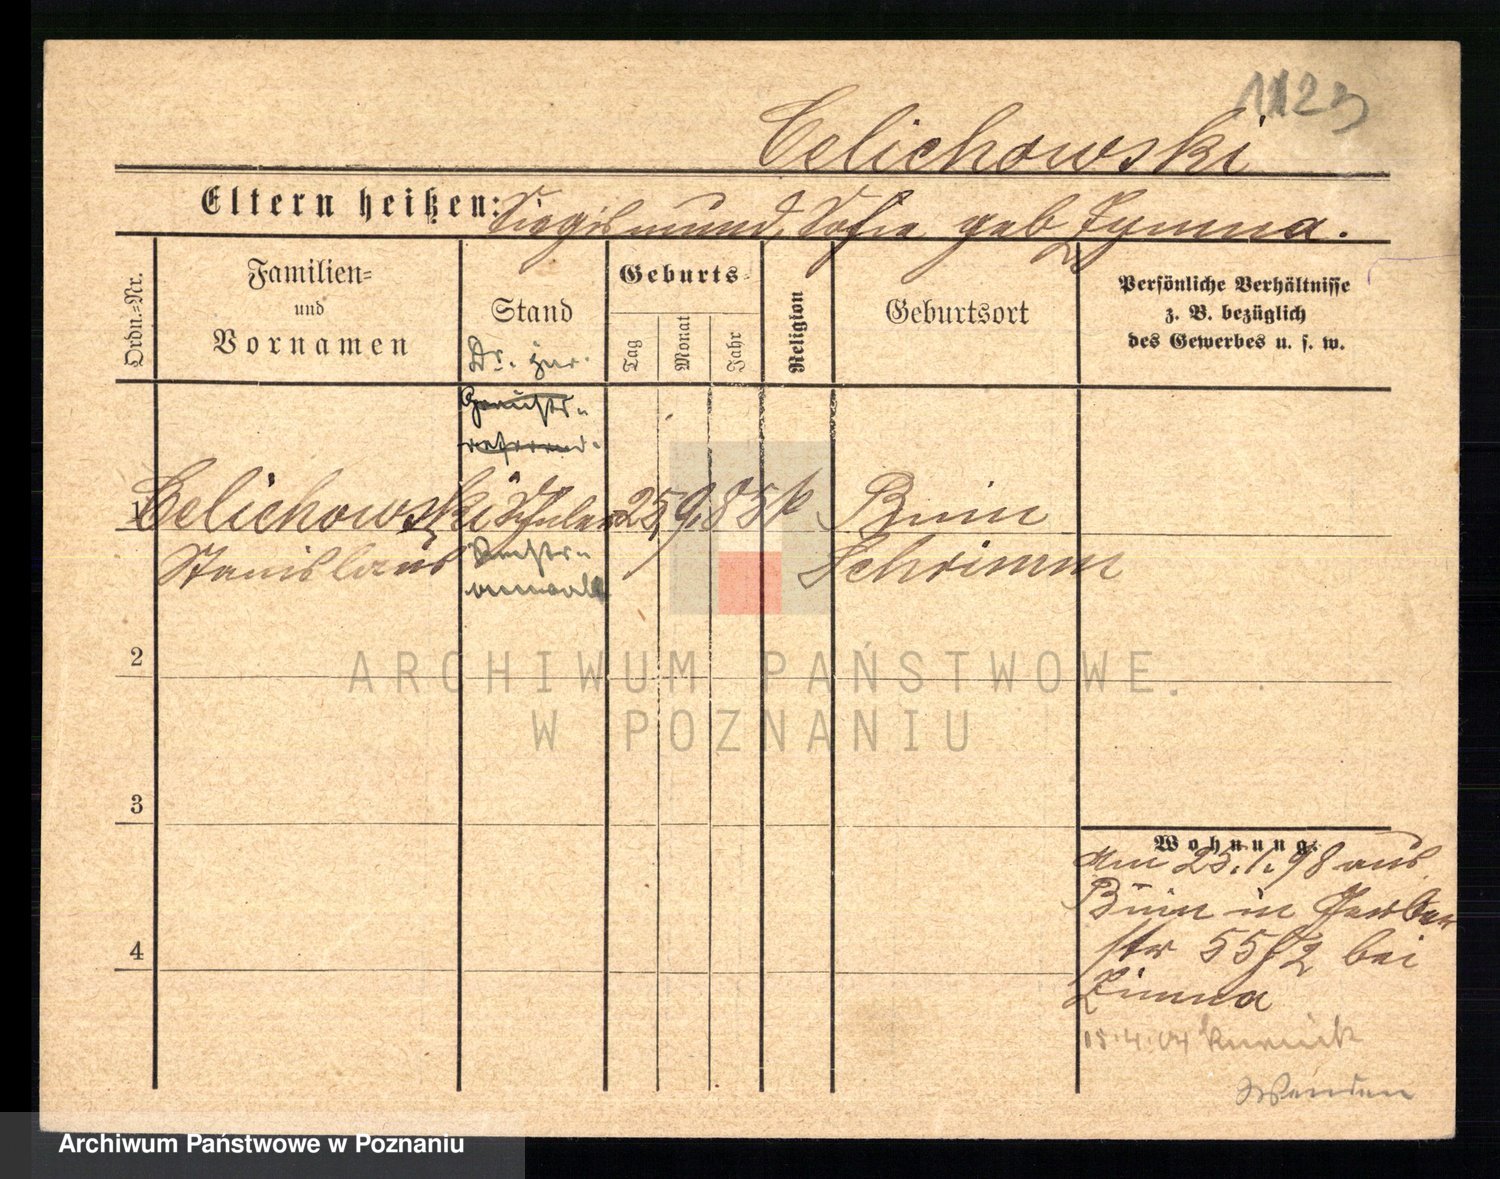 1123
Celichowski
Eltern heißen: Siegismund, Sofie geb Zymna.
Ordn.=Nr.
Familien=
und
Vornamen
Stand
Geburts=
Tag
Monat
Jahr
Religion
Geburtsort
Persönliche Verhältnisse
z. B. bezüglich
des Gewerbes u. s. w.
Dr. jur.
Gerichts=
referend.
1 Celichowski Schüler 25 9. 85 k Bnin
Stanislaus Rechts= Schrimm
anwalt
2
3
4
ARCHIWUM PAŃSTWOWE
W POZNANIU
Wohnung:
am 25.1.98 aus
Bnin in Gerber
str 55 bei
Zimna
15.4.04 zurück
Wenden
Archiwum Państwowe w Poznaniu